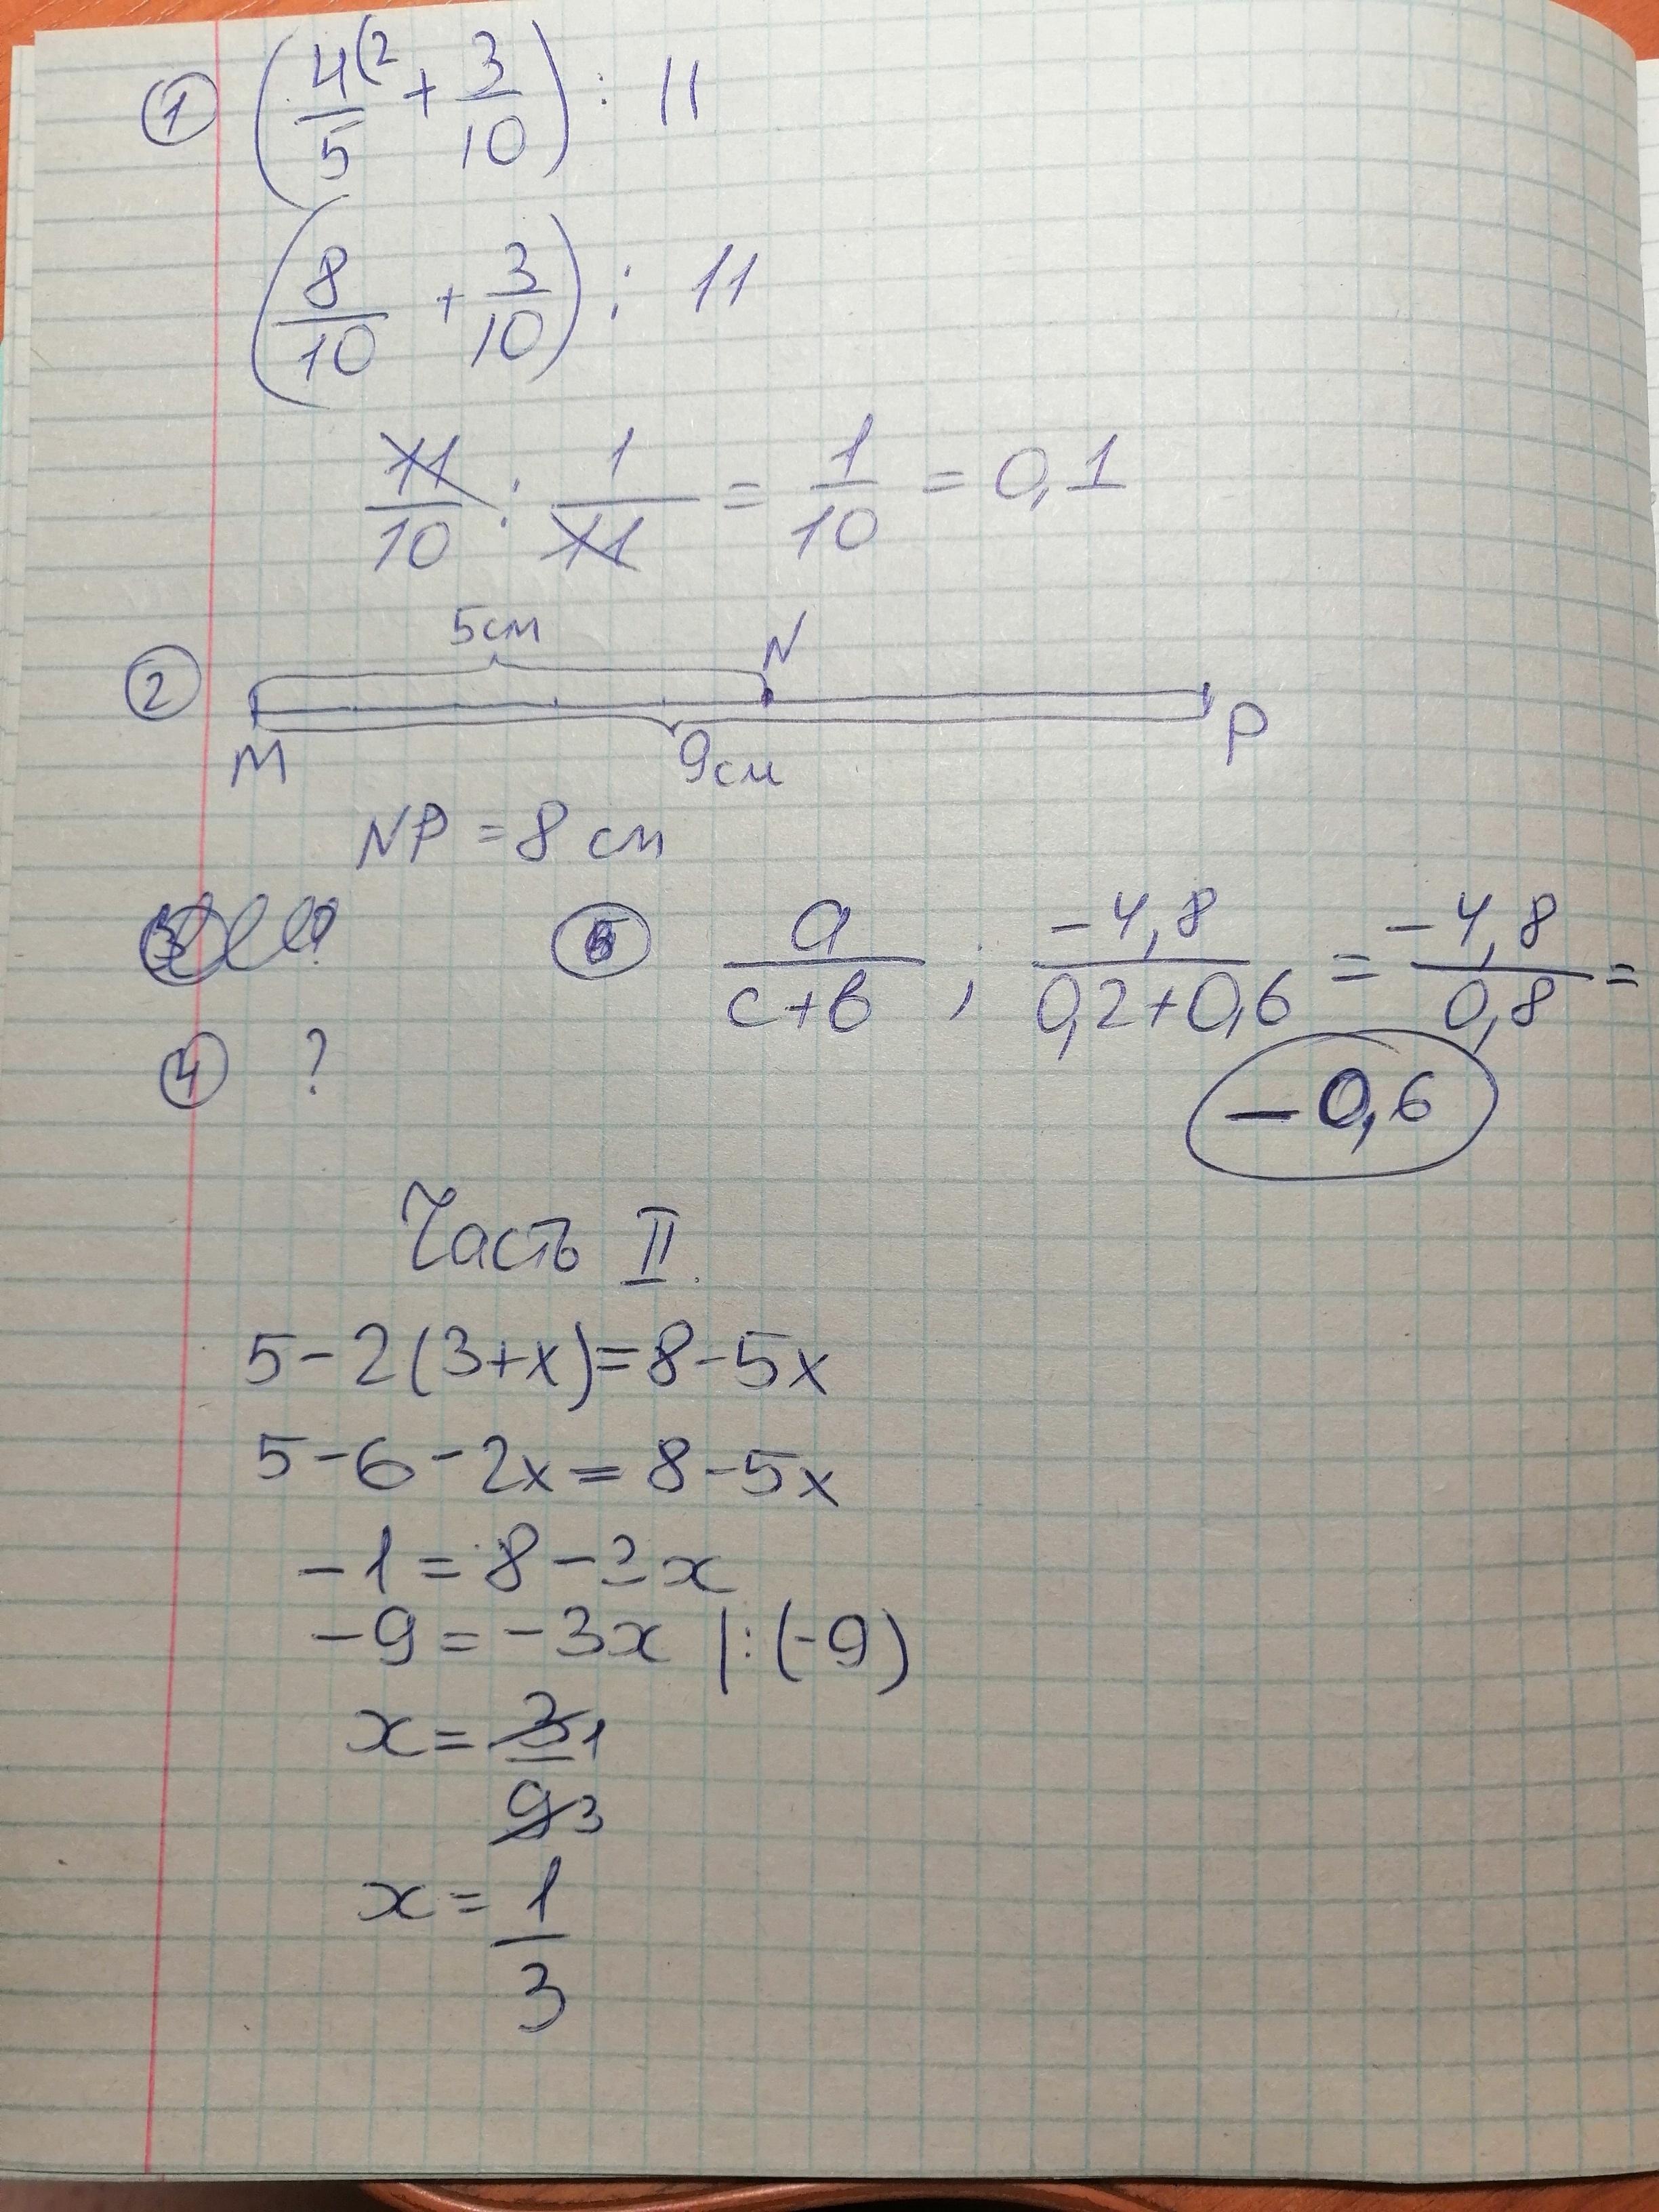 ① (4(2/5 + 3/10) : 11
(8/10 + 3/10) : 11
11/10 : 1/11 = 1/10 = 0,1
5см
② N
M 9см P
NP = 8 см
?
⑤ a/(c+в) ; -4,8/(0,2+0,6) = -4,8/0,8 =
④ ?
-0,6
Часть II.
5-2(3+x)=8-5x
5-6-2x=8-5x
-1=8-3x
-9=-3x |:(-9)
x= 3 1/9 3
x= 1/3